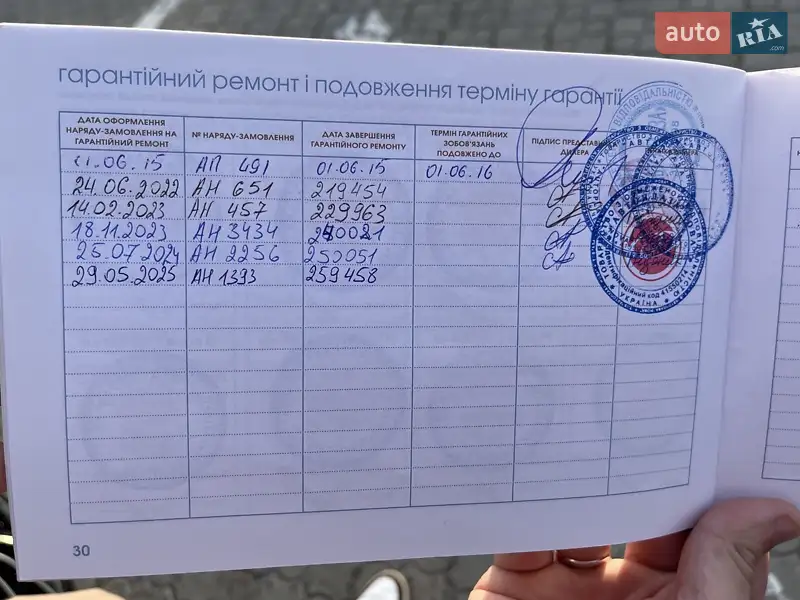 auto RIA .com
гарантійний ремонт і подовження терміну гарантії
ДАТА ОФОРМЛЕННЯ НАРЯДУ-ЗАМОВЛЕННЯ НА ГАРАНТІЙНИЙ РЕМОНТ
№ НАРЯДУ-ЗАМОВЛЕННЯ
ДАТА ЗАВЕРШЕННЯ ГАРАНТІЙНОГО РЕМОНТУ
ТЕРМІН ГАРАНТІЙНИХ ЗОБОВ'ЯЗАНЬ ПОДОВЖЕНО ДО
ПІДПИС ПРЕДСТАВНИКА ДИЛЕРА
01.06.15 АП 491 01.06.15 01.06.16
24.06.2022 АН 651 219454
14.02.2023 АН 457 229963
18.11.2023 АН 3434 240021
25.07.2024 АН 2256 250051
29.05.2025 АН 1393 259458
УКРАЇНА
30